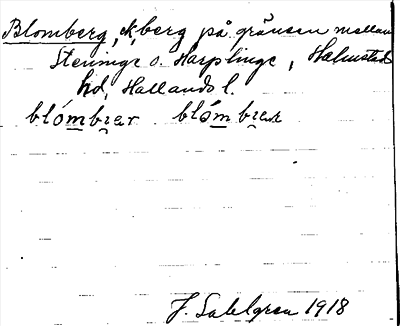 Blomberg, berg på gränsen mellan
Steninge o. Harplinge, Halmstad
hd, Hallands l.
blómbrær blómbrær
J. Sahlgren 1918